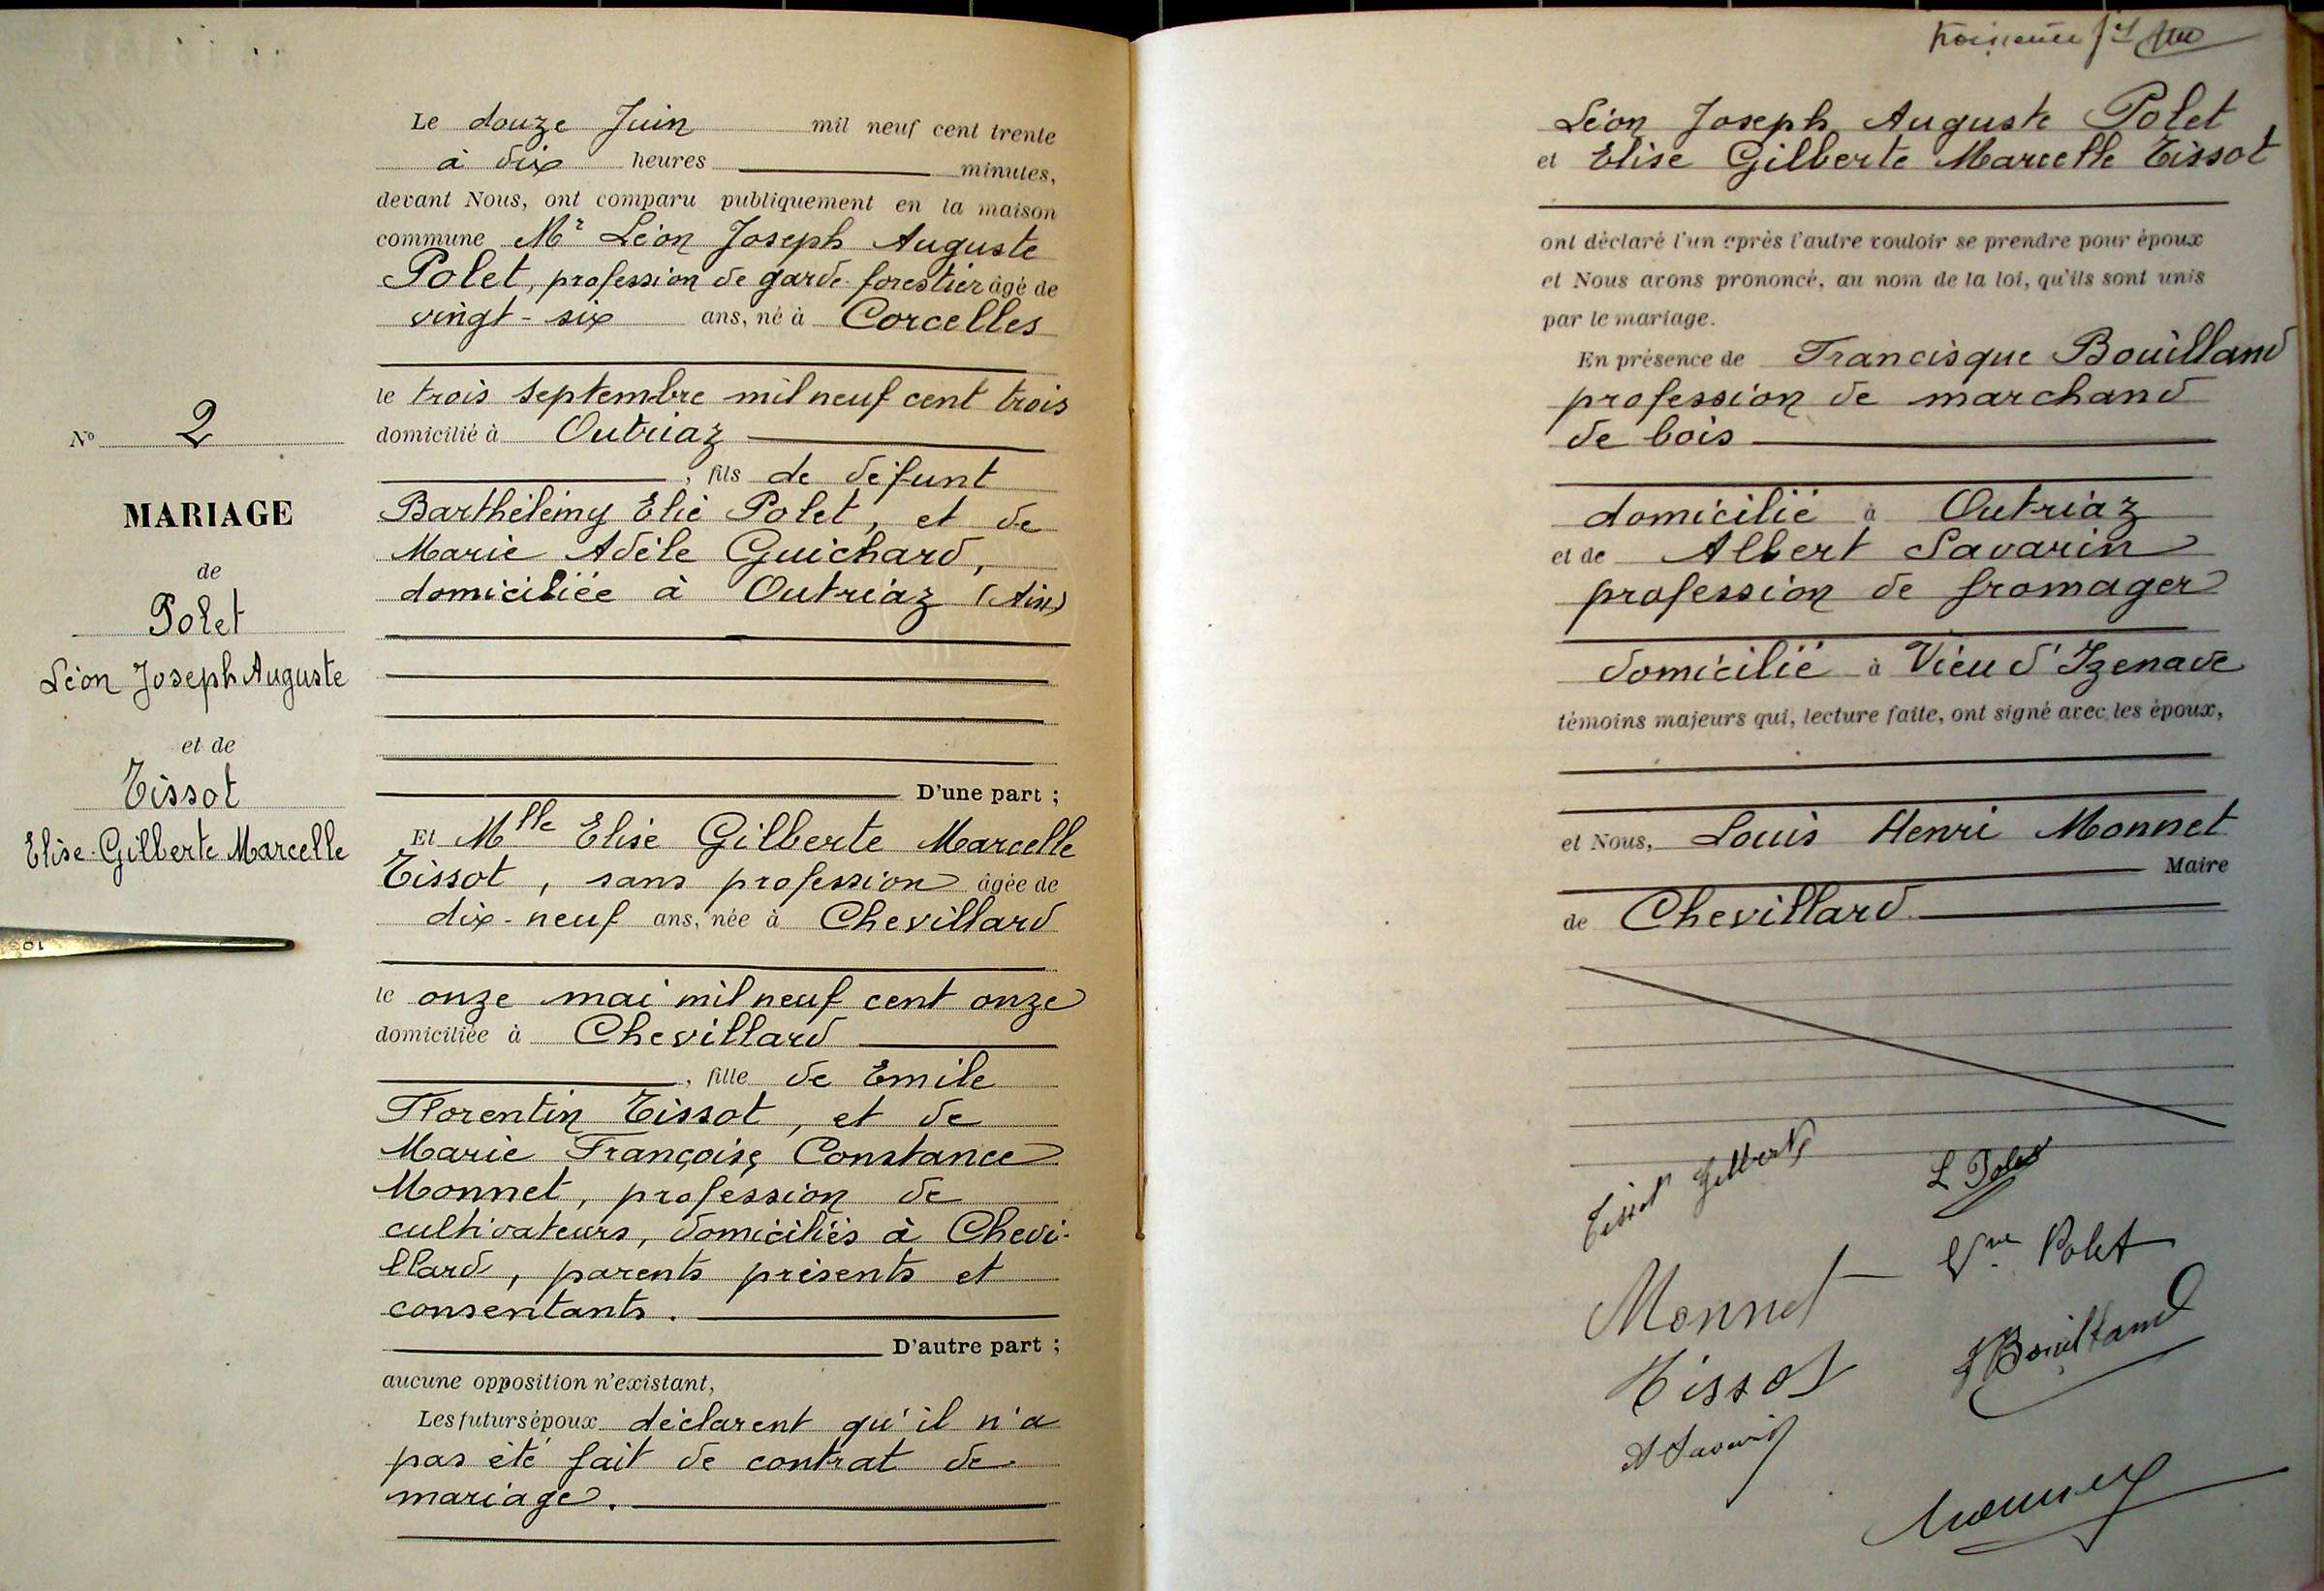 Le douze Juin mil neuf cent trente
à dix heures minutes,
devant Nous, ont comparu publiquement en la maison
commune Mr Léon Joseph Auguste
Polet, profession de garde forestier âgé de
vingt-six ans, né à Corcelles
le trois septembre mil neuf cent trois
domicilié à Outriaz
, fils de défunt
Barthélémy Elie Polet, et de
Marie Adèle Guichard,
domiciliée à Outriaz (Ain)
D'une part ;
Et Mlle Elise Gilberte Marcelle
Tissot, sans profession âgée de
dix-neuf ans, née à Chevillard
le onze mai mil neuf cent onze
domiciliée à Chevillard
, fille de Emile
Florentin Tissot, et de
Marie Françoise Constance
Monnet, profession de
cultivateurs, domiciliés à Chevi-
llard, parents présents et
consentants.
D'autre part ;
aucune opposition n'existant,
Les futurs époux déclarent qu'il n'a
pas été fait de contrat de
mariage.
N° 2
MARIAGE
de
Polet
Léon Joseph Auguste
et de
Tissot
Elise Gilberte Marcelle
Léon Joseph Auguste Polet
et Elise Gilberte Marcelle Tissot
ont déclaré l'un après l'autre vouloir se prendre pour époux
et Nous avons prononcé, au nom de la loi, qu'ils sont unis
par le mariage.
En présence de Francisque Bouilland
profession de marchand
de bois
domicilié à Outriaz
et de Albert Savarin
profession de fromager
domicilié à Vieu d'Izenave
témoins majeurs qui, lecture faite, ont signé avec les époux,
et Nous, Louis Henri Monnet
Maire
de Chevillard
Tissot Gilberte
L Polet
Vve Polet
Monnet
F Bouilland
Tissot
A Savarin
Monnet